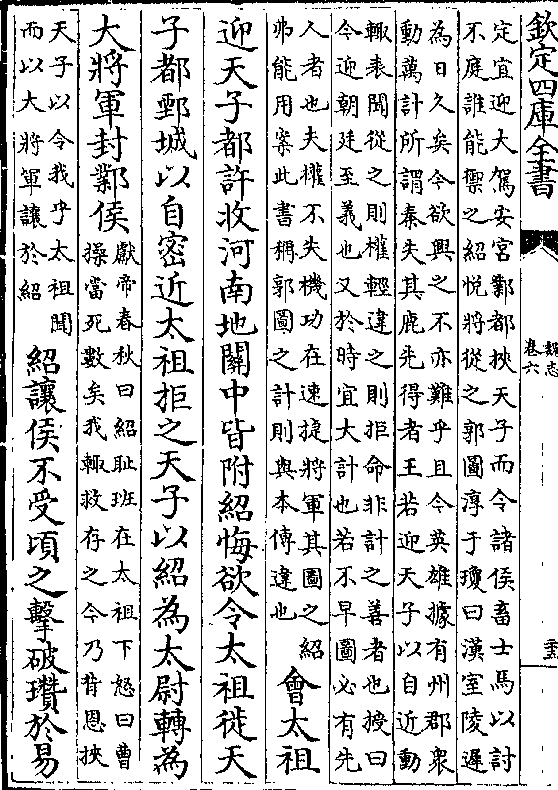 欽定四庫全書
魏志
卷六
定宜迎大駕安宫鄴都挾天子而令諸侯畜士馬以討
不庭誰能禦之紹悅將從之郭圖淳于瓊曰漢室陵遲
為日久矣今欲興之不亦難乎且今英雄據有州郡衆
動萬計所謂秦失其鹿先得者王若迎天子以自近動
輙表聞從之則權輕違之則拒命非計之善者也授曰
今迎朝廷至義也又於時宜大計也若不早圖必有先
人者也夫權不失機功在速捷將軍其圖之紹
弗能用案此書稱郭圖之計則與本傳違也
會太祖
迎天子都許收河南地關中皆附紹悔欲令太祖徙天
子都鄄城以自密近太祖拒之天子以紹為太尉轉為
大將軍封鄴侯
獻帝春秋曰紹耻班在太祖下怒曰曹
操當死數矣我輙救存之今乃背恩挾
天子以令我乎太祖聞
而以大將軍讓於紹
紹讓侯不受頃之擊破瓚於易